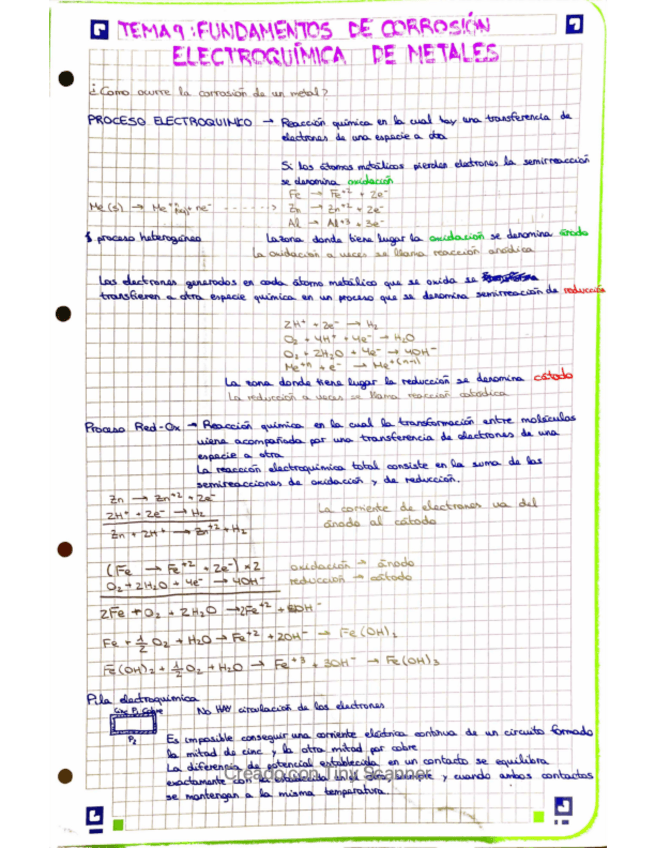 TEMA 9: FUNDAMENTOS DE CORROSIÓN
ELECTROQUÍMICA DE METALES
¿Como ocurre la corrosión de un metal?
PROCESO ELECTROQUIMICO → Reacción química en la cual hay una transferencia de
electrones de una especie a otra
Si los átomos metálicos pierden electrones la semirreacción
se denomina oxidación
Fe → Fe+2 + 2e-
Me(s) → Me+n(aq) + ne- ------> Zn → Zn+2 + 2e-
Al → Al+3 + 3e-
proceso heterogéneo La zona donde tiene lugar la oxidación se denomina ánodo
La oxidación a veces se llama reacción anódica
Los electrones generados en cada átomo metálico que se oxida se
transfieren a otra especie química en un proceso que se denomina semirreacción de reducción
2H+ + 2e- → H2
O2 + 4H+ + 4e- → H2O
O2 + 2H2O + 4e- → 4OH-
Me+n + e- → Me+(n-1)
La zona donde tiene lugar la reducción se denomina cátodo
La reducción a veces se llama reacción catódica
Proceso Red-Ox → Reacción química en la cual la transformación entre moléculas
viene acompañada por una transferencia de electrones de una
especie a otra
La reacción electroquímica total consiste en la suma de las
semireacciones de oxidación y de reducción.
Zn → Zn+2 + 2e-
2H+ + 2e- → H2
La corriente de electrones va del
ánodo al cátodo
Zn + 2H+ → Zn+2 + H2
(Fe → Fe+2 + 2e-) x2 oxidación → ánodo
O2 + 2H2O + 4e- → 4OH- reducción → cátodo
2Fe + O2 + 2H2O → 2Fe+2 + OH-
Fe + 1/2 O2 + H2O → Fe+2 + 2OH- → Fe(OH)2
Fe(OH)2 + 1/2 O2 + H2O → Fe+3 + 3OH- → Fe(OH)3
Pila electroquímica
No HAY circulación de los electrones
P1 Cobre
P2
Es imposible conseguir una corriente eléctrica continua de un circuito formado
la mitad de cinc y la otra mitad por cobre
La diferencia de potencial establecida en un contacto se equilibra
exactamente con la establecida en el otro, siempre y cuando ambos contactos
se mantengan a la misma temperatura.
Creado con Tiny Scanner